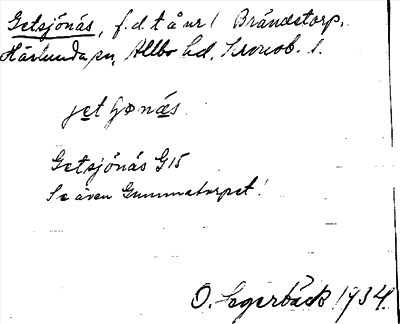 Getsjönäs, f.d. t å nr 1 Brändstorp,
Härlunda sn, Allbo hd, Kronob. l.
jet ʃønæs
Getsjönäs G15
Se även Gummatorpet!
O. Segerbäck 1934.